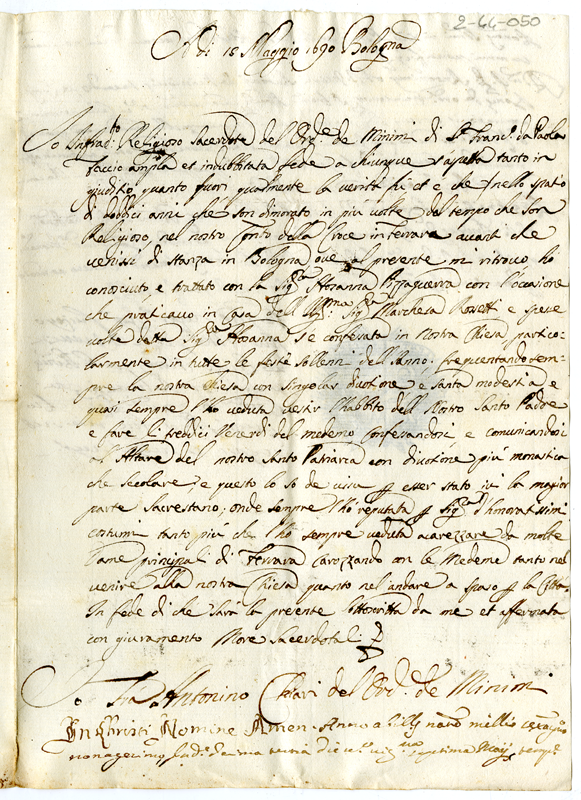 2-64-050
A di 15 Maggio 1690 Bologna
Io Infrad.to Religioso Sacerdote del Ord.e de Minimi di S. Franc.o da Paola
faccio ampla et indubbitata fede a chiunque aspetta tanto in
giuditio, quanto fuori qualmente la verità fù et è che nello spatio
di dodici anni che son dimorato in più volte dal tempo che son
Religioso, nel nostro Con.to della Croce in Ferrara avanti che
venissi di stanza in Bologna ove al presente mi ritrovo hò
conosciuto, e trattato con la Sig.ra Hosanna Pizzaguerra con l'occasione
che praticavo in casa dell Ill.ma Sig.ra Marchesa Rossetti e spese
volte detta Sig.ra Hosanna s'è confessata in nostra Chiesa, partico-
larmente in tutte le feste sollenni dell'anno, frequentando sem-
pre la nostra Chiesa con singolar divotione e santa modestia e
quasi sempre l'hò veduta vestir l'habbito dell Nostro Santo Padre
e fare li treddici Venerdì del medemo confessandosi, e comunicandosi
al Altare del nostro Santo Patriarca con divotione più monastica
che secolare, e questo lo sò de visu p esser stato ivi la magior
parte sacrestano, onde sempre l'hò reputata p Sig.ra d'honoratissimi
costumi tanto più che l'hò sempre veduta acarezzare da molte
Dame principali di Ferrara carozzando con le medeme tanto nel
venire alla nostra Chiesa quanto nel andare a spaso p la Città
In fede di che sarà la presente sottoscritta da me et affermata
con giuramento More sacerdotali
Io Fra Antonino Chiari del Ord.e de Minimi
In Christi Nomine Amen. Anno a
nonagesimo, Ind. tertia die septima